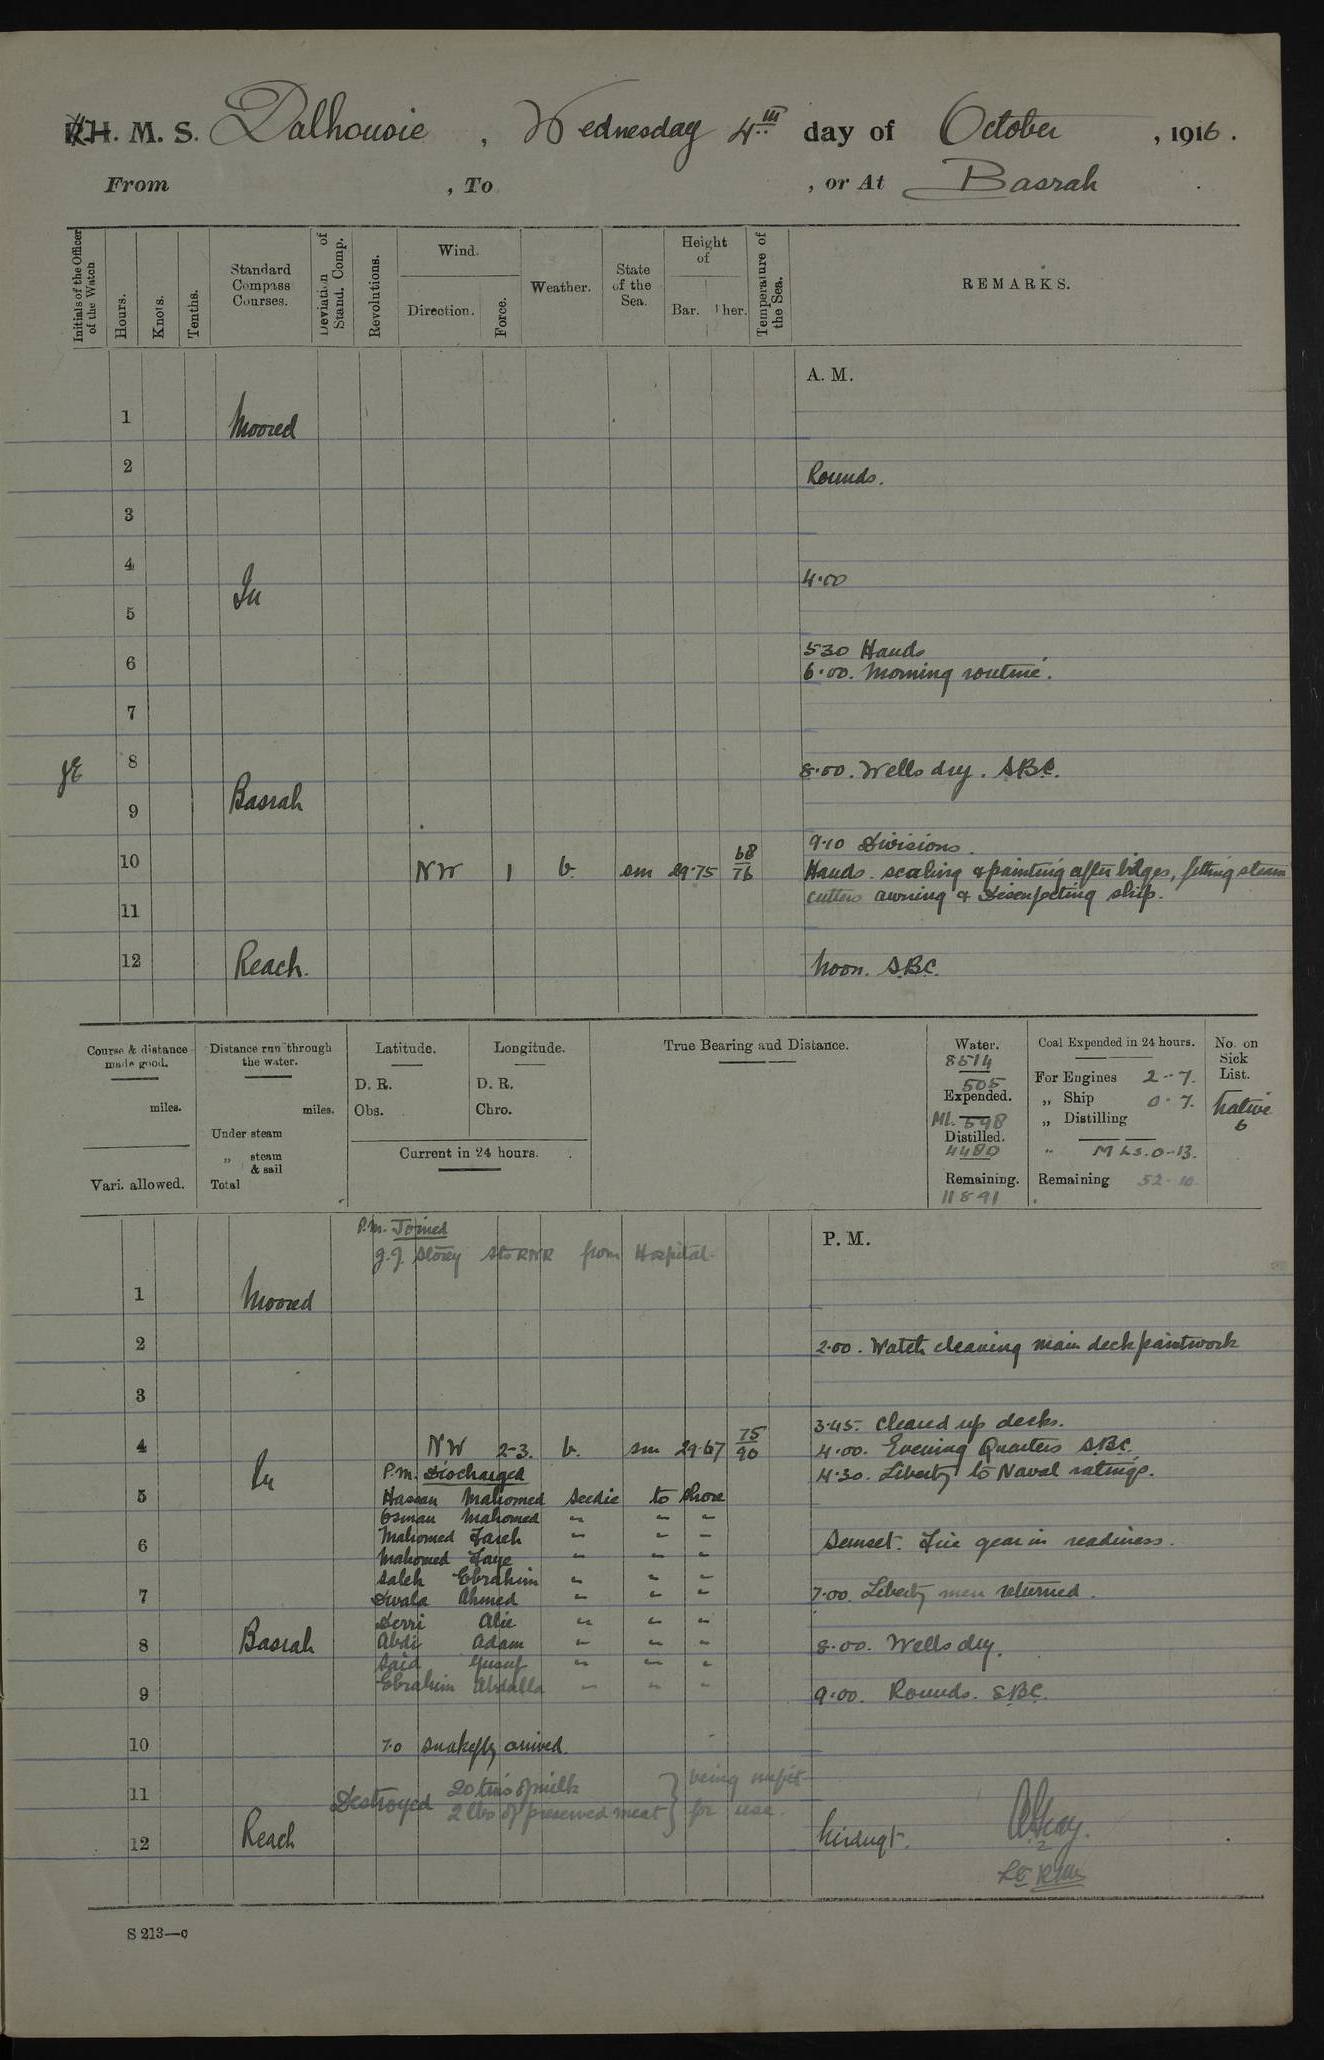 H. M. S. Dalhousie, Wednesday 4th day of October, 1916.
From , To , or At Basrah
Initials of the Officer of the Watch
Hours.
Knots.
Tenths.
Standard Compass Courses.
Deviation of Stand. Comp.
Revolutions.
Wind.
Direction.
Force.
Weather.
State of the Sea.
Height of
Bar. Ther.
Temperature of the Sea.
REMARKS.
A. M.
1 Moored
2 Rounds.
3
4 4.00
In
5
530 Hands
6 6.00. Morning routine.
7
8 8.00. Wells dry. SBC.
9 Basrah
9.10 Divisions.
10 NW 1 b. sm 29.75 68/76 Hands scaling & painting after bilges, fitting steam
11 cutters awning & Disenfecting ship.
12 Reach. Noon. SBC.
Course & distance made good.
miles.
Vari. allowed.
Distance run through the water.
miles.
Under steam
„ steam & sail
Total
Latitude.
D. R.
Obs.
Longitude.
D. R.
Chro.
Current in 24 hours.
True Bearing and Distance.
Water.
8514
505
Expended.
Ml. 598
Distilled.
4480
Remaining.
11891
Coal Expended in 24 hours.
For Engines 2-7.
„ Ship 0.7.
„ Distilling
„ M Ls. 0-13.
Remaining 52-10
No. on Sick List.
Native
6
P.M. Joined
G.J. Storey Sto RNR from Hospital
P. M.
1 Moored
2 2.00. Watch cleaning main deck paintwork
3
3.45. Cleared up decks.
4 NW 2-3. b. sm 29.67 75/90 4.00. Evening Quarters SBC.
In P.M. Discharged 4.30. Liberty to Naval ratings.
5 Hassan Mahomed Seedie to Shore
Osman Mahomed " " "
6 Mahomed Fareh " " " Sunset. Fire gear in readiness.
Mahomed " " "
Saleh Ebrahim " " "
7 Dwala Ahmed " " " 7.00. Liberty men returned.
Derri Alie " " "
8 Basrah Abdi Adam " " " 8.00. Wells dry.
Said Yusuf " " "
9 Ebrahim Abdalla " " " 9.00. Rounds. SBC.
10 7.0 Snakefly arrived.
11 Destroyed 20 tins of milk } being unfit
2 lbs of preserved meat } for use.
12 Reach Midngt.
S 213—c